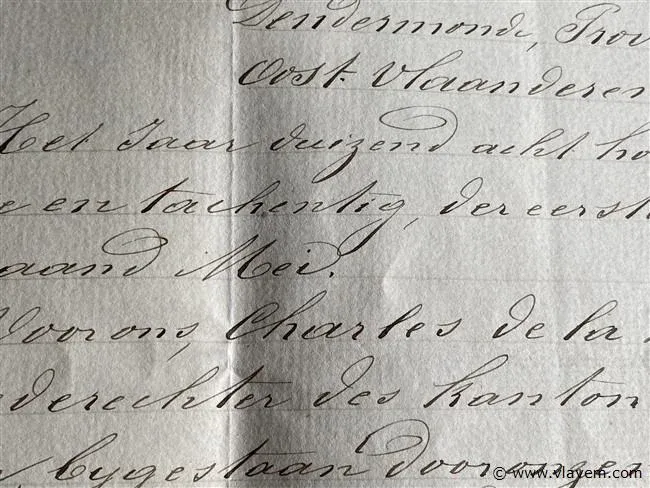 Dendermonde, Prov
Oost-Vlaanderen
Het Jaar duizend acht ho
e en tachentig, der eerst
aand Mei.
Voor ons, Charles de la
derechter des kanton
, bygestaan door onzen
© www.vlavem.com